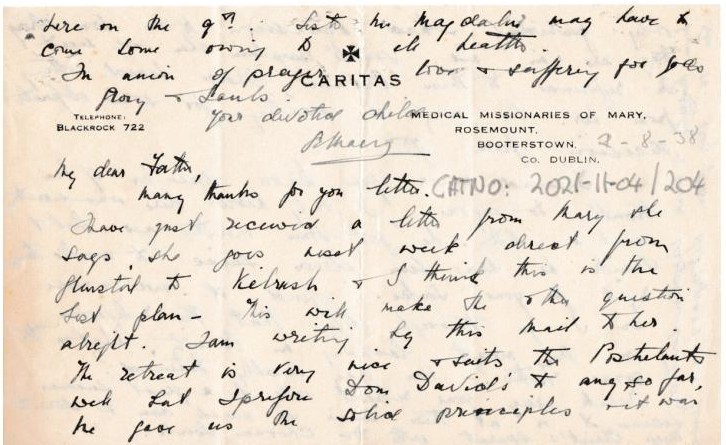 here on the 9th. Sister M. Magdalen may have to
come home owing to ill health.
In union of prayer love & suffering for God's
glory & Souls.
your devoted child
M Mary
CARITAS
TELEPHONE:
BLACKROCK 722
MEDICAL MISSIONARIES OF MARY,
ROSEMOUNT,
BOOTERSTOWN,
CO. DUBLIN.
2-8-38
CATNO: 2021-11-04/204
My dear Father,
Many thanks for your letter.
I have just received a letter from Mary she
says she goes next week direct from
to & I think this is the
best plan - This will make the other question
alright. I am writing by this mail to her.
The retreat is very nice & suits the Postulants
well but I prefer Dom David's to any so far,
he gave us the solid principles & it was